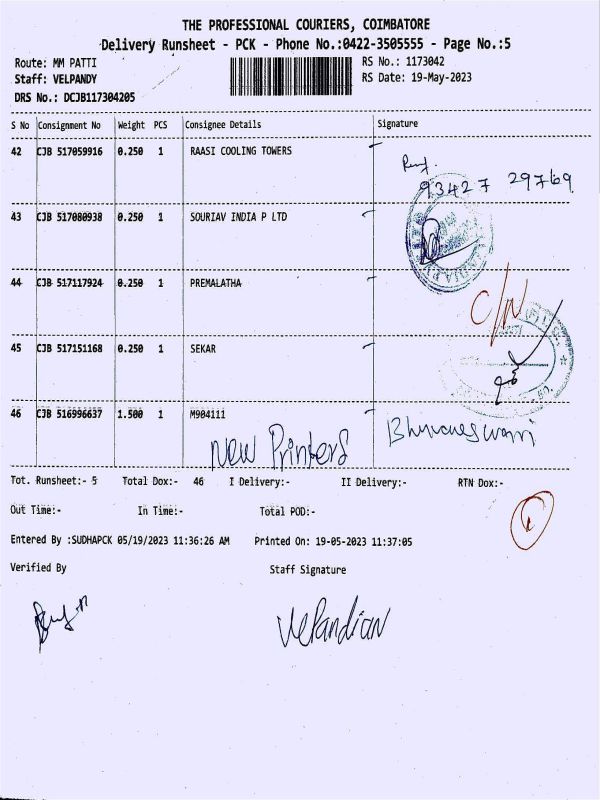 THE PROFESSIONAL COURIERS, COIMBATORE
Delivery Runsheet - PCK - Phone No.:0422-3505555 - Page No.:5
Route: MM PATTI
RS No.: 1173042
Staff: VELPANDY
RS Date: 19-May-2023
DRS No.: DCJB117304205
S No Consignment No Weight PCS Consignee Details Signature
42 CJB 517059916 0.250 1 RAASI COOLING TOWERS
93427 29769
43 CJB 517080938 0.250 1 SOURIAV INDIA P LTD
44 CJB 517117924 0.250 1 PREMALATHA
C/N
45 CJB 517151168 0.250 1 SEKAR
46 CJB 516996637 1.500 1 M904111
New Printers Bhuvaneswari
Tot. Runsheet:- 5 Total Dox:- 46 I Delivery:- II Delivery:- RTN Dox:-
Out Time:- In Time:- Total POD:-
Entered By :SUDHAPCK 05/19/2023 11:36:26 AM Printed On: 19-05-2023 11:37:05
Verified By Staff Signature
VelPandian